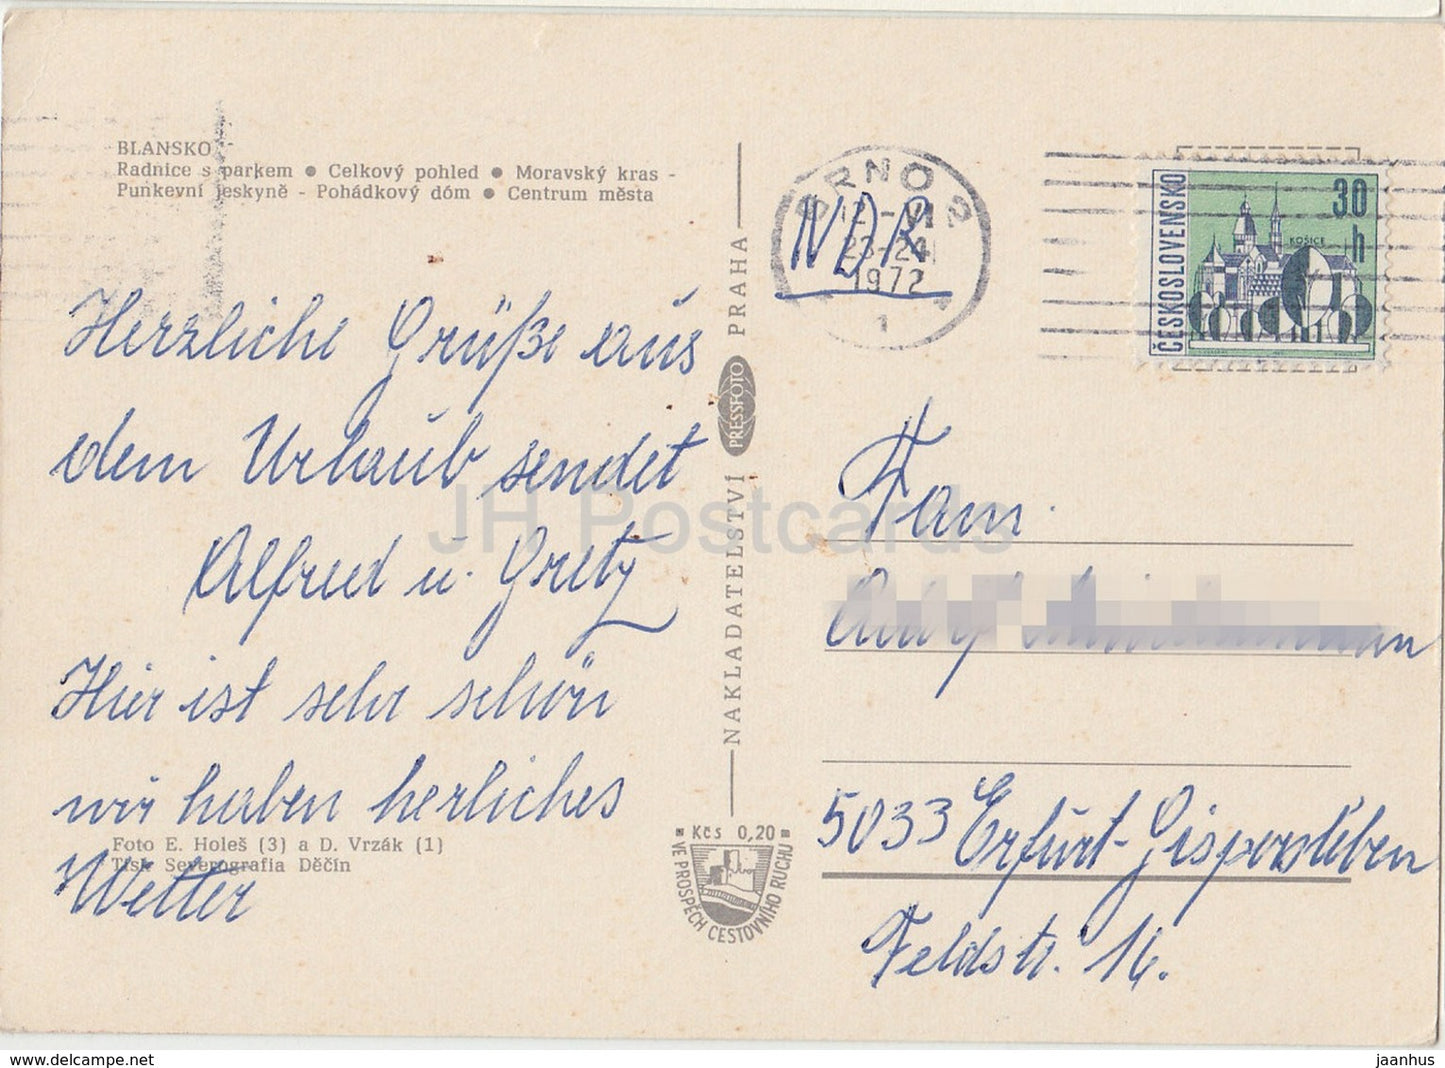 BLANSKO
Radnice s parkem ● Celkový pohled ● Moravský kras -
Punkevní jeskyně - Pohádkový dóm ● Centrum města
Herzliche Grüße aus
dem Urlaub sendet
Alfred u. Gretz
Hier ist sehr schön
wir haben herliches
Wetter
Foto E. Holeš (3) a D. Vrzák (1)
Tisk Severografia Děčín
NAKLADATELSTVÍ PRESSFOTO PRAHA
Kčs 0,20
VE PROSPĚCH CESTOVNÍHO RUCHU
BRNO 2
12.-VI
23-24
1972
1
NDR
ČESKOSLOVENSKO
30 h
KOŠICE
Fam.
5033 Erfurt-Gispersleben
Feldstr. 16.
JH Postcards
www.delcampe.net
jaanhus